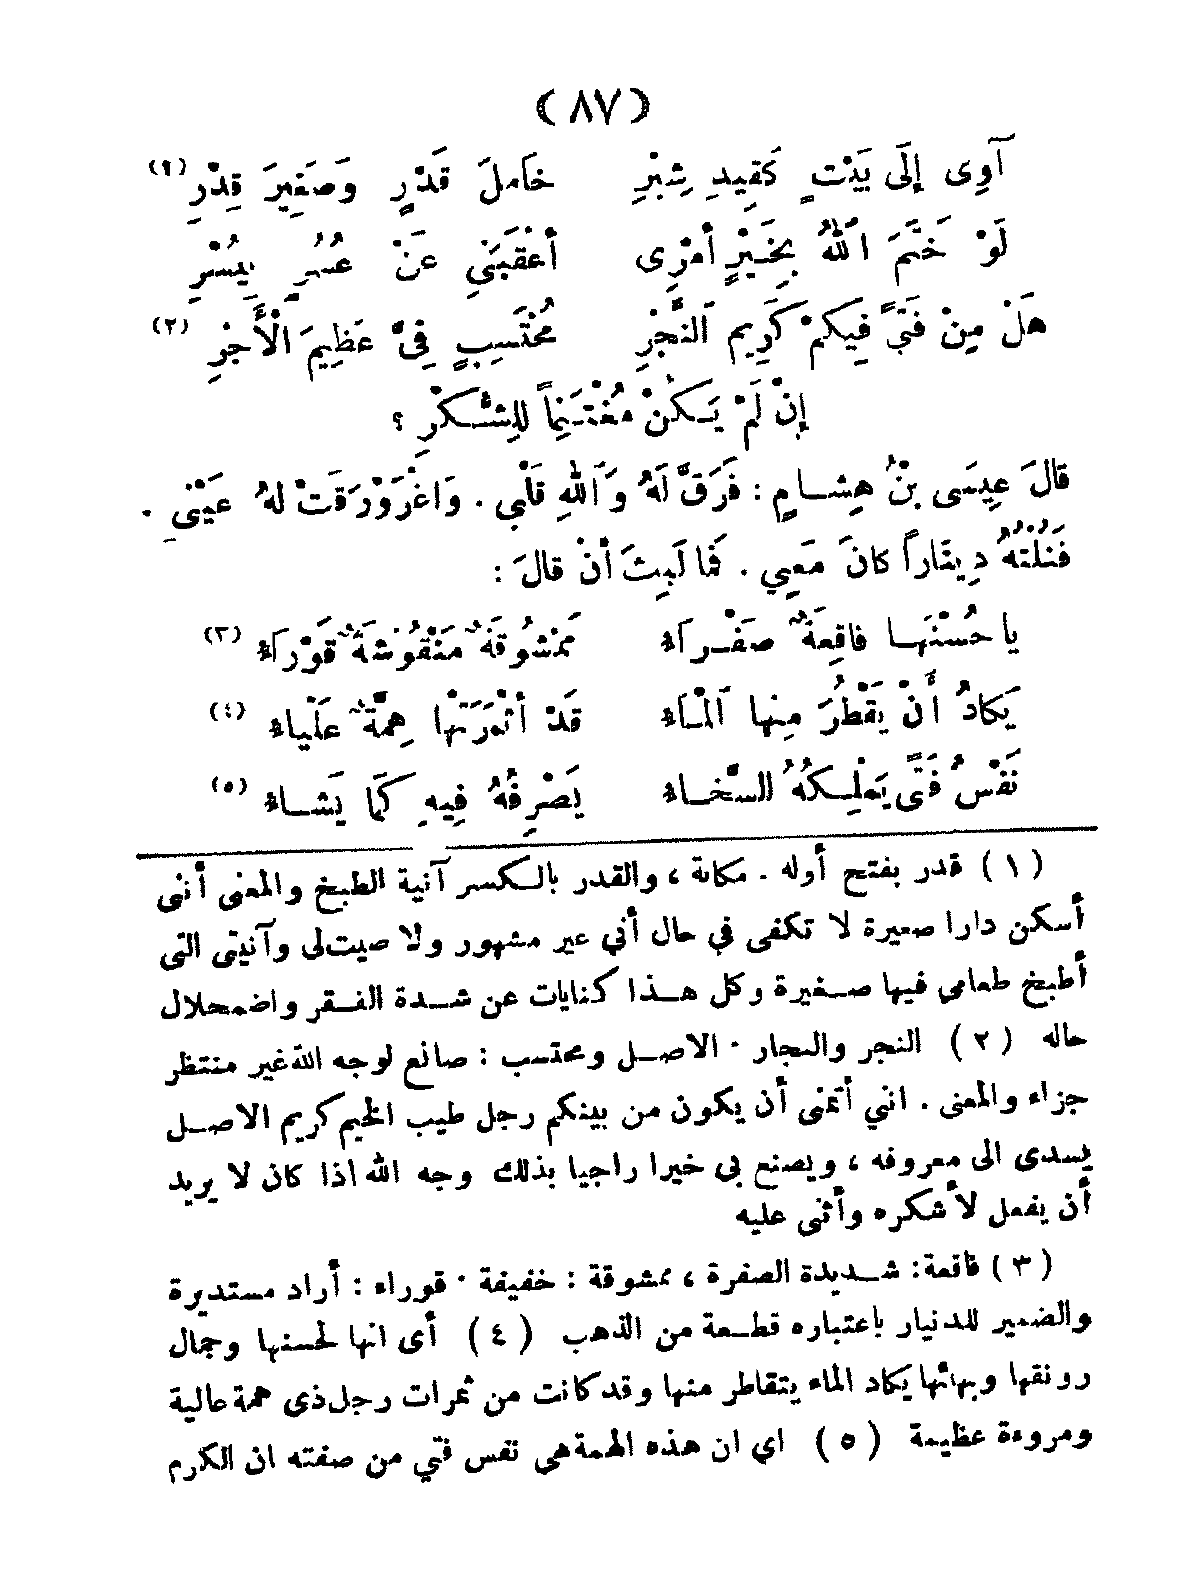 (٨٧)
آوِى إِلَى بَيْتٍ كَقِيدِ شِبْرِ خَامِلَ قَدْرٍ وَصَغِيرَ قِدْرِ (١)
لَوْ خَتَمَ اللهُ بِخَيْرٍ أَمْرِى أَعْقَبَنِي عَنْ عُسْرٍ بِيُسْرِ
هَلْ مِنْ فَتًى فِيكُمْ كَرِيمِ النَّجْرِ مُحْتَسِبٍ فِىَّ عَظِيمَ الْأَجْرِ (٢)
إِنْ لَمْ يَكُنْ مُغْتَنِماً لِلشُّكْرِ ؟
قَالَ عِيسَى بْنُ هِشَامٍ : فَرَقَّ لَهُ وَاللهِ قَلْبِي . وَاغْرَوْرَقَتْ لَهُ عَيْنِي .
فَنُلْتُهُ دِينَاراً كَانَ مَعِي . فَمَا لَبِثَ أَنْ قَالَ :
يا حُسْنَهَا فَاقِعَةٌ صَفْرَاءُ مَمْشُوقَةٌ مَنْقُوشَةٌ قَوْرَاءُ (٣)
يَكَادُ أَنْ يَقْطُرَ مِنْهَا الْمَاءُ قَدْ أَثْمَرَتْهَا هِمَّةٌ عَلْيَاءُ (٤)
نَفْسُ فَتًى يَمْلِكُهُ السَّخَاءُ يَصْرِفُهُ فِيهِ كَمَا يَشَاءُ (٥)
(١) قدر بفتح أوله . مكانة ، والقدر بالكسر آنية الطبخ والمعنى أننى
أسكن دارا صغيرة لا تكفى في حال أني غير مشهور ولا صيت لى وآنيتى التى
أطبخ طعامى فيها صغيرة وكل هذا كنايات عن شدة الفقر واضمحلال
حاله (٢) النجر والنجار . الاصل ومحتسب : صانع لوجه الله غير منتظر
جزاء والمعنى . انني أتمنى أن يكون من بينكم رجل طيب الخيم كريم الاصل
يسدى الى معروفه ، ويصنع بي خيرا راجيا بذلك وجه الله اذا كان لا يريد
أن يفعل لأشكره وأثنى عليه
(٣) فاقعة : شديدة الصفرة ، ممشوقة : خفيفة . قوراء : أراد مستديرة
والضمير للدنيار باعتباره قطعة من الذهب (٤) أى انها لحسنها وجمال
رونقها وبهائها يكاد الماء يتقاطر منها وقد كانت من ثمرات رجل ذى همة عالية
ومروءة عظيمة (٥) اي ان هذه الهمة هى نفس فتي من صفته ان الكرم